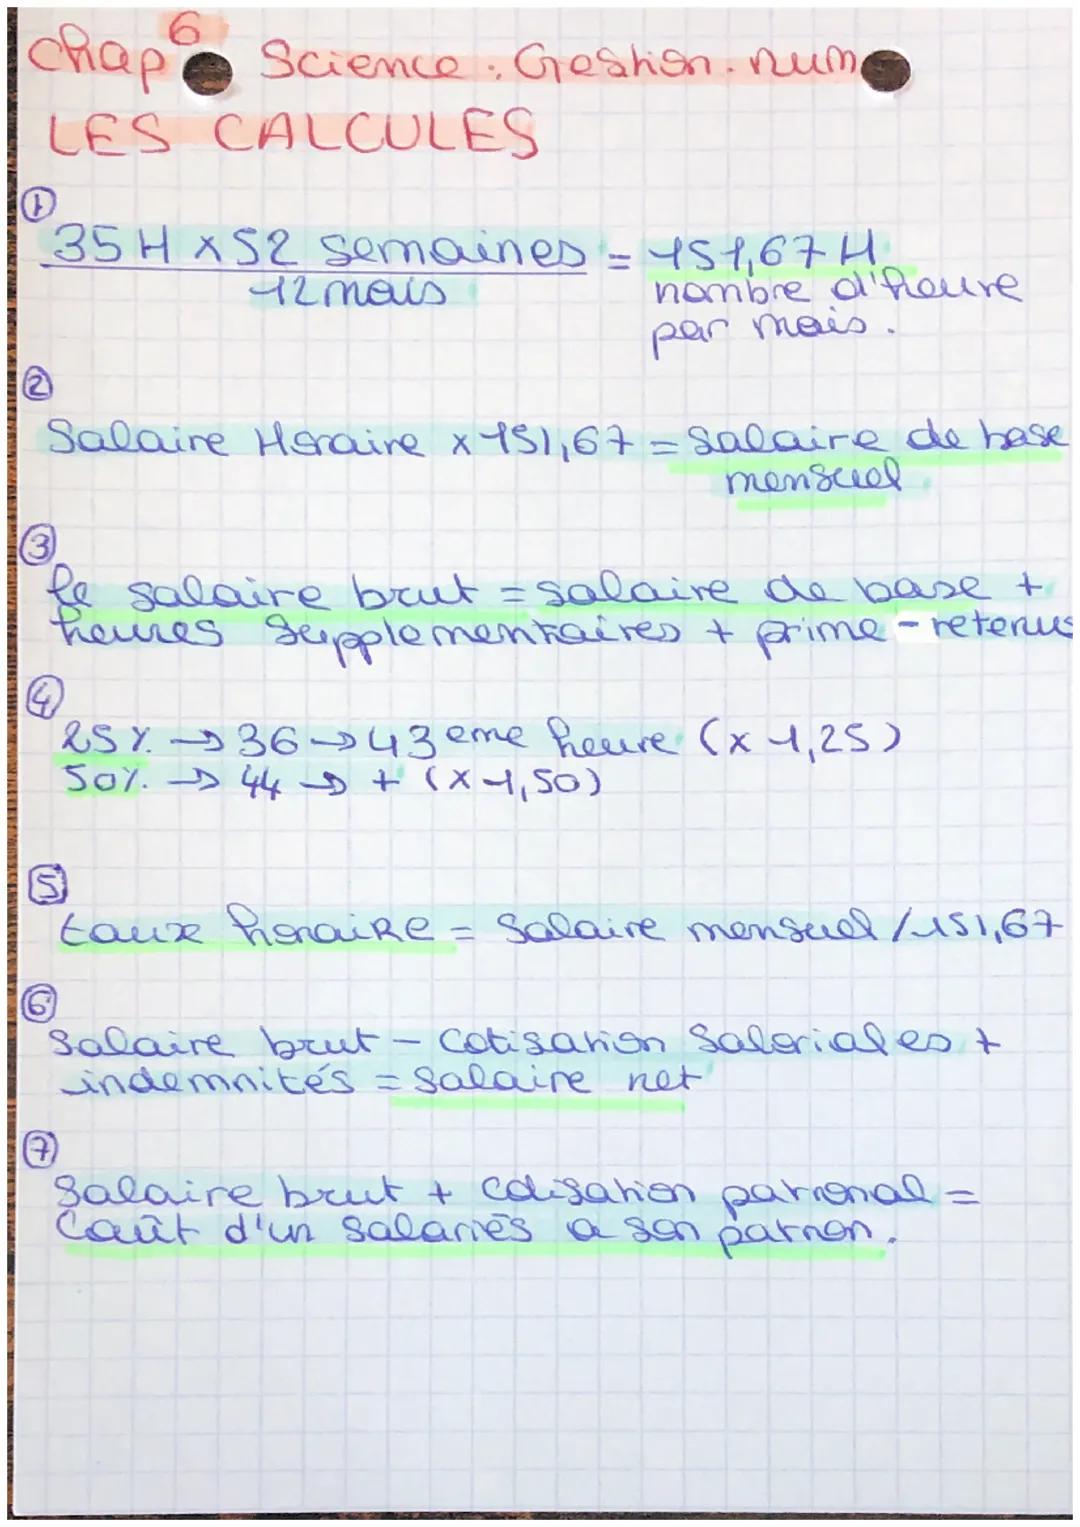 Chap 6 Science. Gestion. num
LES CALCULES
①
35H x 52 semaines = 151,67 H
12 mois
nombre d'heure
par mois.
②
Salaire Horaire x 151,67 = salaire de base
mensuel
③
le salaire brut = salaire de base +
heures supplementaires + prime - retenus
④
25% → 36 → 43 eme heure (x 1,25)
50% → 44 → + (x 1,50)
⑤
taux horaire = salaire mensuel / 151,67
⑥
Salaire brut - cotisation salariales +
indemnités = salaire net
⑦
Salaire brut + cotisation patronal =
Coût d'un salariés a son patron.